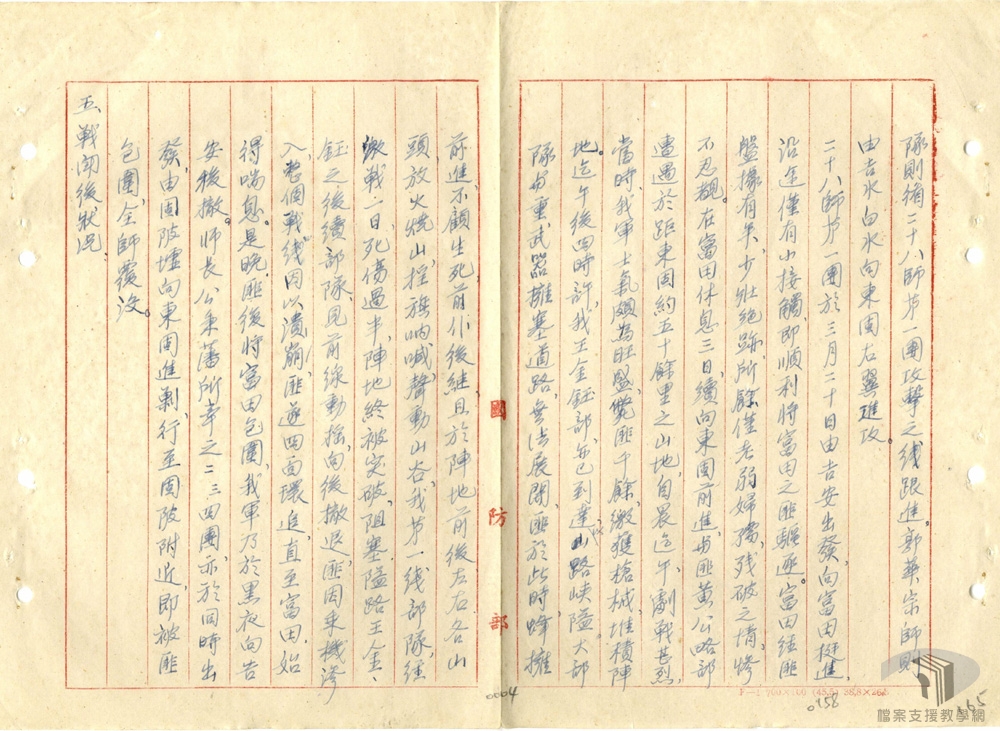 隊則循二十八師第一團攻擊之线跟進，郭華宗師則
由吉水白水向東固右翼進攻。
二十八師第一團於三月二十日由吉安出發，向富田挺進，
沿途僅有小接觸，即順利將富田之匪驅逐。富田經匪
盤據有年，少壯絕跡，所餘僅老弱婦孺，残破之情，慘
不忍覩。在富田休息三日，續向東固前進，與匪黃公略部
遭遇於距東固約五十餘里之山地，自晨迄午，劇戰甚烈，
當時，我軍士氣頗為旺盛，斃匪千餘，繳獲槍械，堆積陣
地。迄午後四時許，我王金鈺部，亦已到達，山路峽隘。大部
隊與重武器擁塞道路，無法展開，匪於此時，蜂擁
前進，不顧生死，前仆後継，且於陣地前後左右各山
頭，放火燒山，搖旗吶喊，聲動山谷，我第一线部隊，經
激戰一日，死傷過半，陣地終被突破，阻塞隘路，王金
鈺之後續部隊，見前線動搖，向後撤退，匪因乘機滲
入，整個戰线，因以潰崩，匪逐四面環追，直至富田，始
得喘息。是晚，匪復將富田包圍，我軍乃於黑夜向吉
安後撤。師長公秉藩所率之二三四團，亦於同時出
發，由固陂墟向東固進剿，行至固陂附近，即被匪
包圍，全師覆没。
五、戰鬥後狀況
國防部
0004
F—1 700×100 (45.5) 38.8×26.8
0158
165
檔案支援教學網